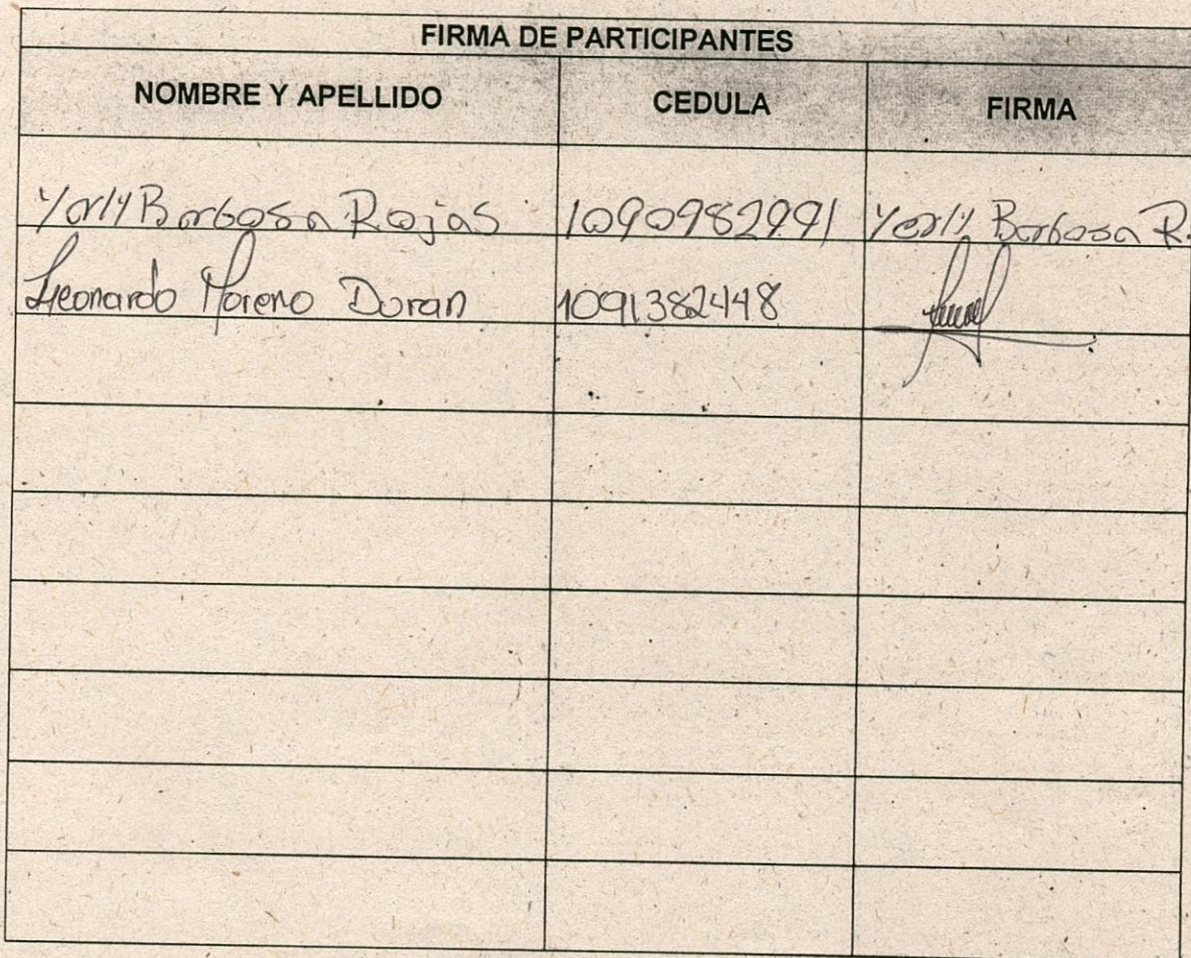 FIRMA DE PARTICIPANTES
NOMBRE Y APELLIDO CEDULA FIRMA
Yorly Barbosa Rojas 1090982991 Yorly Barbosa R.
Leonardo Moreno Duran 1091382448